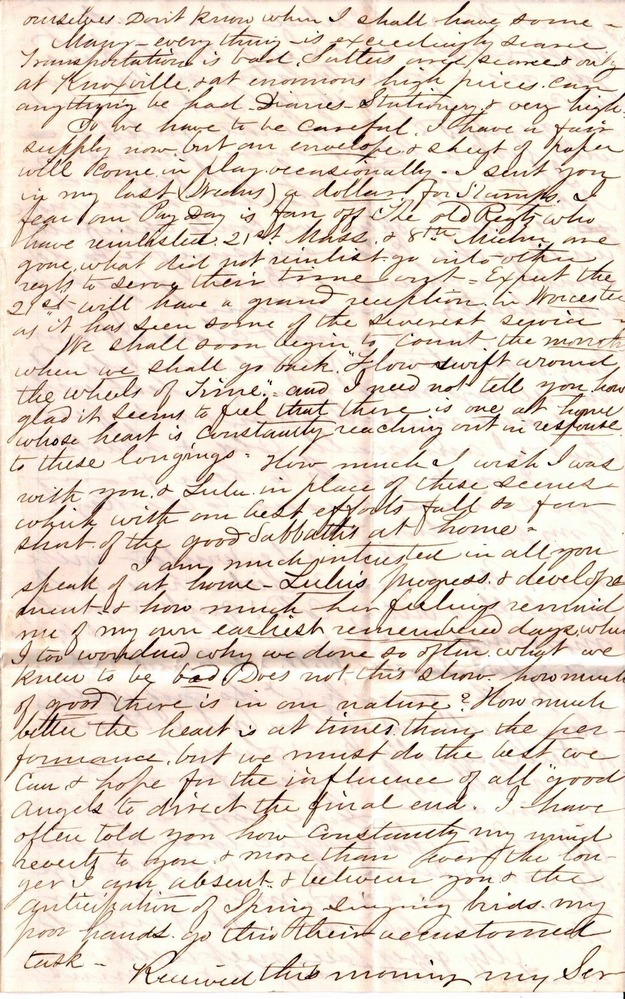 ourselves. Don't know when I shall have some -
Many - every thing - is exceedingly scarce
Transportation is bad. Sutlers are scarce & only
at Knoxville & at enormous high prices can
anything be had. Diaries Stationery & very high.
So we have to be careful. I have a fair
supply now but an envelope & sheet of paper
will come in play occasionally - I sent you
in my last (Weeks) a dollar for Stamps. I
fear our Pay Day is far off. The old Regts who
have reinlisted. 21st Mass. & 8th Mich. are
gone, what did not reinlist go into other
regts to serve their time out = Expect the
21st will have a grand reception in Worcester
as it has seen some of the severest service -
We shall soon begin to count the months
when we shall go back. "How swift around
the wheels of Time". and I need not tell you how
glad it seems to feel that there is one at home
whose heart is constantly reaching out in response
to these longings - How much I wish I was
with you & Lulu in place of these scenes
which with our best efforts fall so far
short of the good Sabbaths at home -
I am much interested in all you
speak of at home - Lulu's progress & develope
ment & how much her feelings remind
me of my own earliest remembered days, when
I too wondered why we done so often what we
knew to be bad Does not this show how much
of good there is in our nature? How much
better the heart is at times than the per-
formance, but we must do the best we
can & hope for the influence of all "good
Angels to direct the final end. I have
often told you how constantly my mind
reverts to you & more than ever the lon-
ger I am absent. & between you & the
anticipation of Spring singing birds. my
poor hands go thro their accustomed
task -
Received this morning my Ser